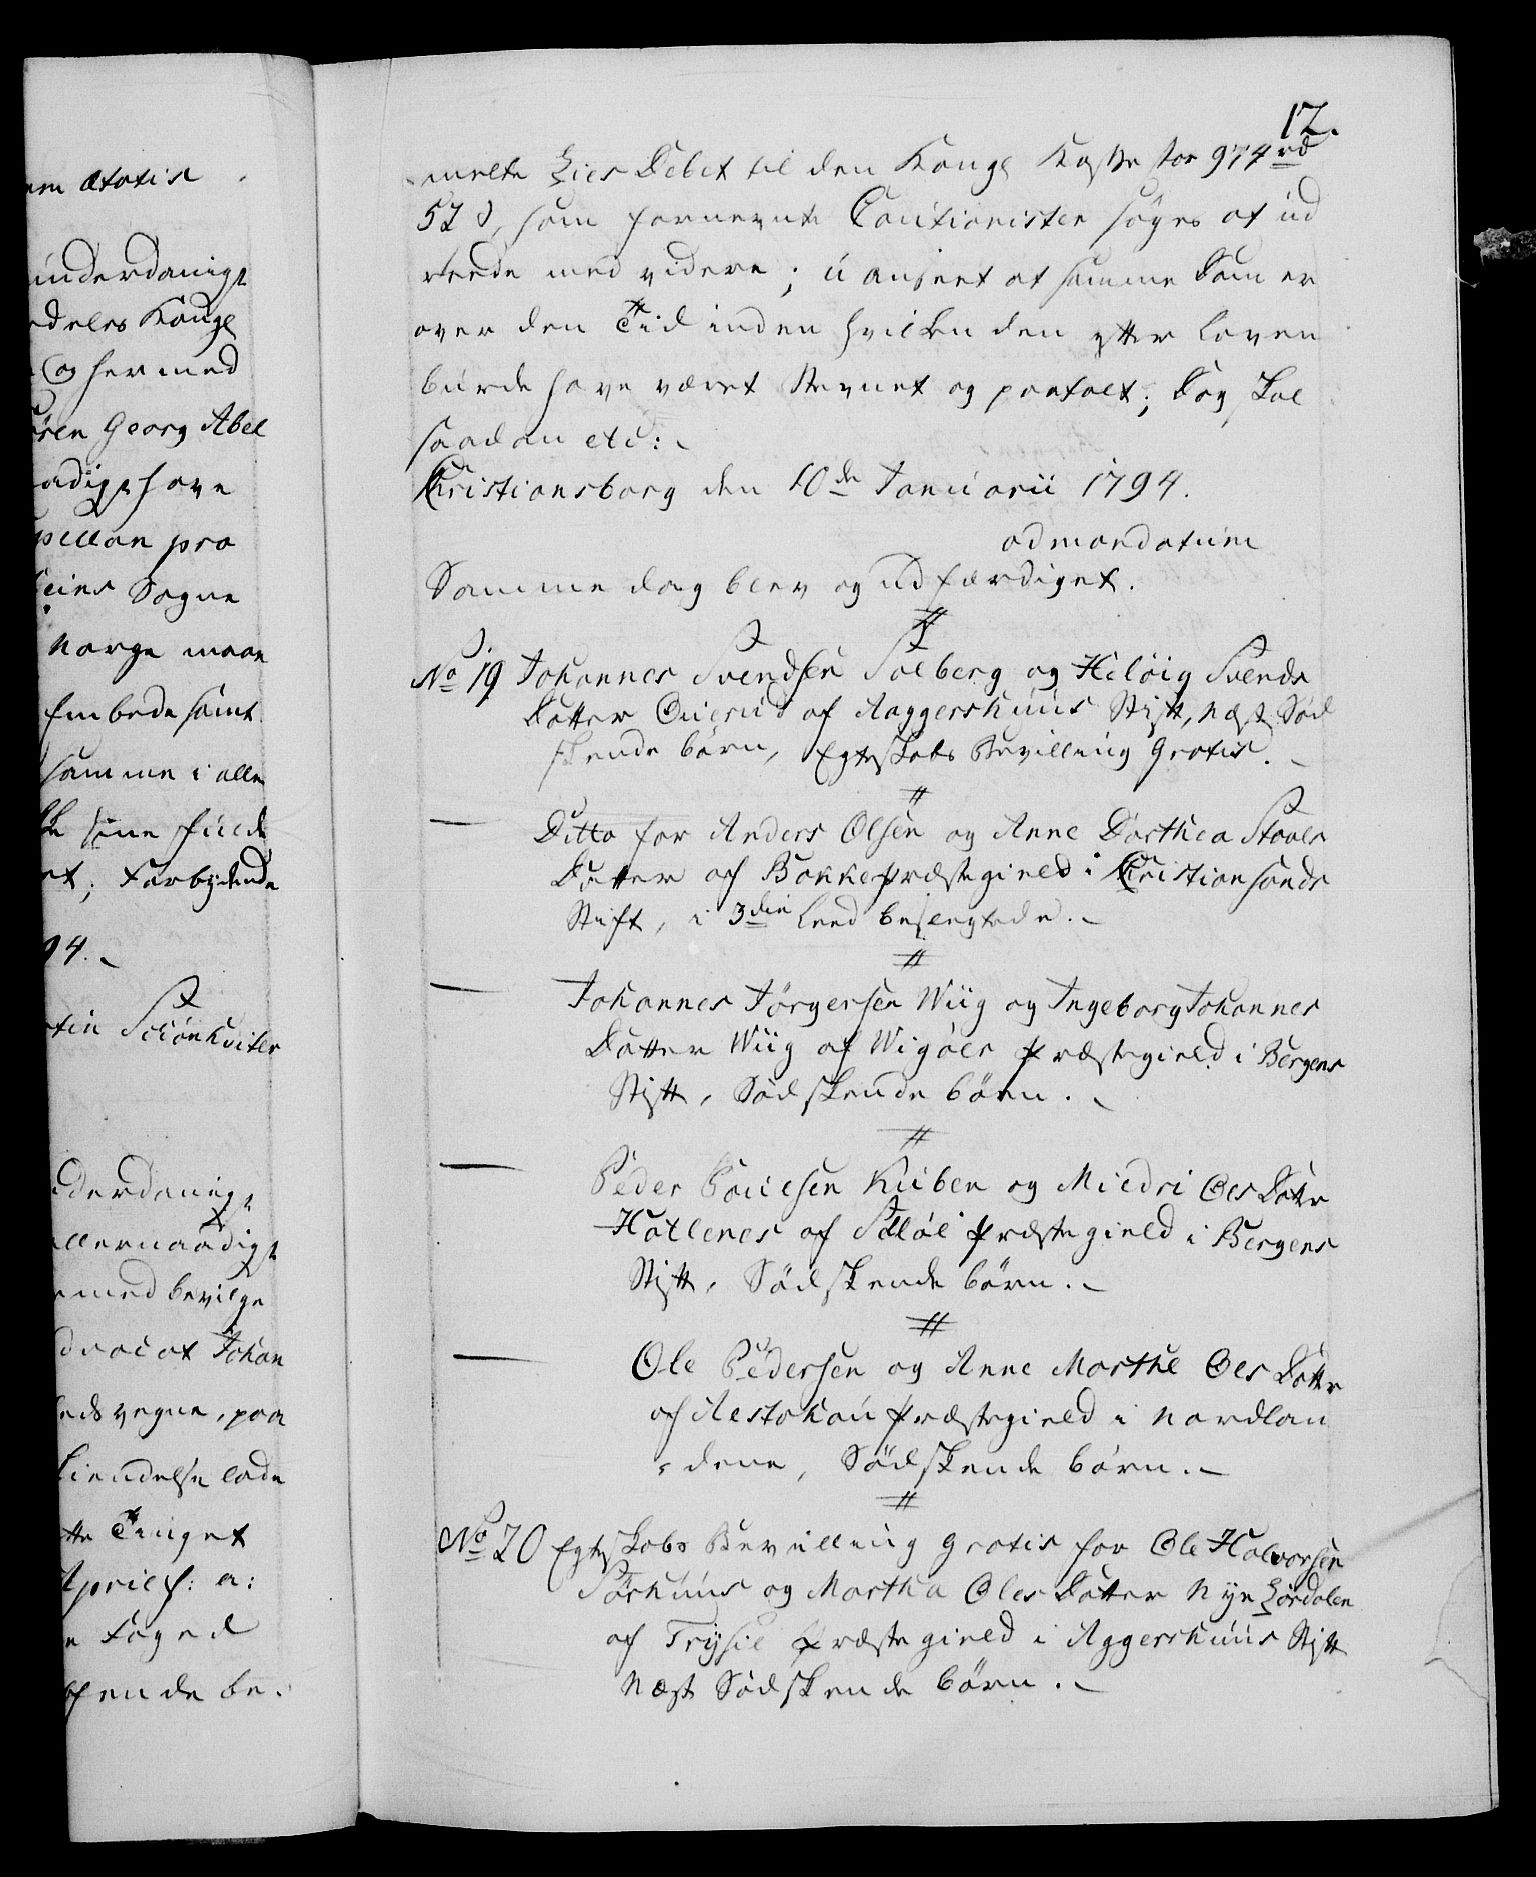 em ætatis
underdanigst
edeles Kongl
og hermed
ören Georg Abel
aadigst have
pellan pro
Sogne
Norge maae
Embede samt
samme i alle
sine fulde
et; Forbydende
94.
tin Schönhviler
derdanigst
llernaadigst
med bevilge
Johan
eds vegne, paa
kiendelse lade
tte Tinget
April f: a:
e Foged
ende be-
12.
meldte Lies Debet til den Kongl Kasse for 974 rd
52 s, som fornevnte Cautionister søges at ud
rede med videre; uanseet at samme Dom er
over den Tid inden hvilken den efter Loven
burde have været stevnet og paatalt; Dog skal
saadan etc:
Christiansborg den 10de Januarii 1794.
ad mandatum
Samme dag blev og udfærdiget.
No 19 Johannes Svendsen Solberg og Helvig Svends
Datter Qvierud af Aaggershuus Stift, næst Sød
skende børn, Egteskabs Bevilling Gratis.
Ditto for Anders Olsen og Anne Dorthea Staals
Datter af Bakke Præstegield i Christiansands
Stift, i 3die Leed beslegtede.
Johannes Jörgersen Wiig og Ingeborg Johannes
Datter Wiig af Wigöer Præstegield i Bergens
Stift, Sødskende børn.
Peder Poulsen Kuben og Mildri Ols Dattr
Hatlenes af Selöe Præstegield i Bergens
Stift, Sødskende børn.
Ole Pedersen og Anne Marthe Ols Dattr
af Aestahau Præstegield i Nordlan
dene, Sødskende børn.
No 20 Egteskabs Bevilling gratis for Ole Halvorsen
Törhuus og Martha Oles Datter Nye Lördalen
af Trysil Præstegield i Aggershuus Stift
næst Sødskende børn.